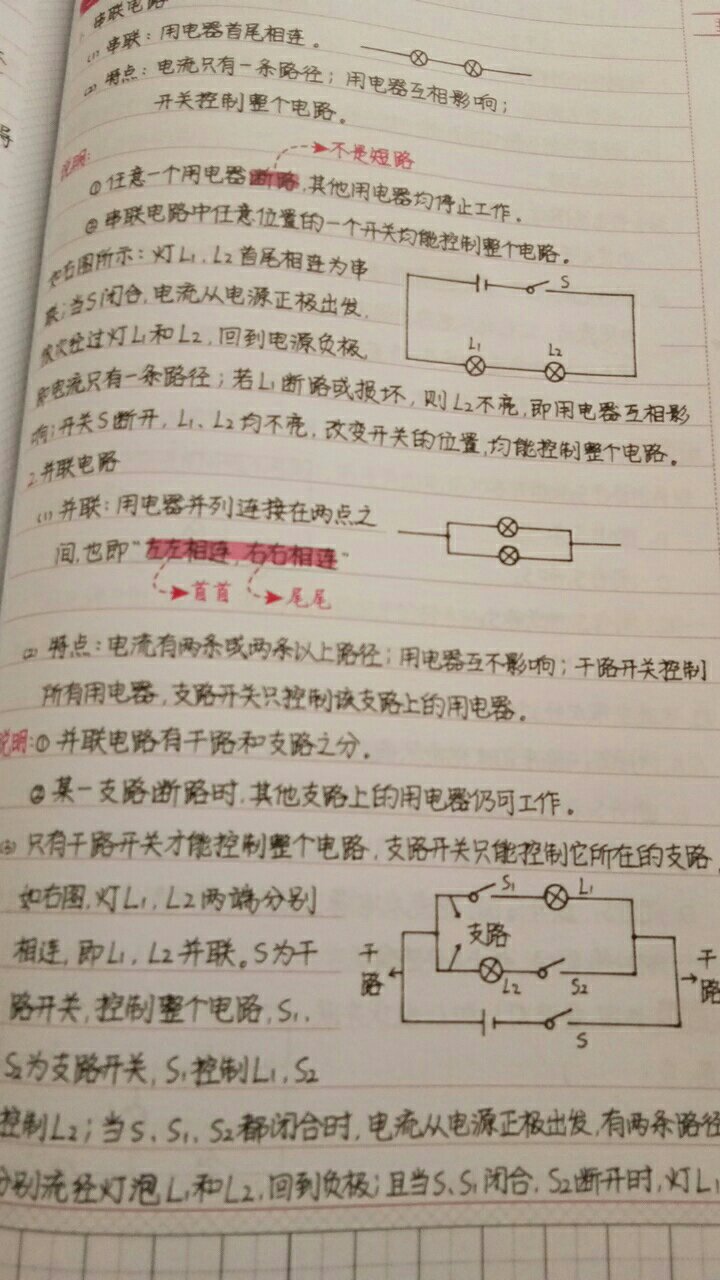 1. 串联电路
(1) 串联：用电器首尾相连。
(2) 特点：电流只有一条路径；用电器互相影响；
开关控制整个电路。
不是短路
说明：
① 任意一个用电器断路，其他用电器均停止工作。
② 串联电路中任意位置的一个开关均能控制整个电路。
如右图所示：灯L₁、L₂首尾相连为串
联；当S闭合，电流从电源正极出发，
依次经过灯L₁和L₂，回到电源负极，
S
L₁ L₂
即电流只有一条路径；若L₁断路或损坏，则L₂不亮，即用电器互相影
响；开关S断开，L₁、L₂均不亮，改变开关的位置，均能控制整个电路。
2.并联电路
(1) 并联：用电器并列连接在两点之
间，也即"左左相连，右右相连"
首首 尾尾
(2) 特点：电流有两条或两条以上路径；用电器互不影响；干路开关控制
所有用电器，支路开关只控制该支路上的用电器。
说明：① 并联电路有干路和支路之分。
② 某一支路断路时，其他支路上的用电器仍可工作。
(3) 只有干路开关才能控制整个电路，支路开关只能控制它所在的支路，
如右图，灯L₁，L₂两端分别
相连，即L₁，L₂并联。S为干
路开关，控制整个电路，S₁、
S₂为支路开关，S₁控制L₁，S₂
S₁ L₁
支路
干路
干路
L₂ S₂
S
控制L₂；当S、S₁、S₂都闭合时，电流从电源正极出发，有两条路径
分别流经灯泡L₁和L₂，回到负极；且当S、S₁闭合，S₂断开时，灯L₁